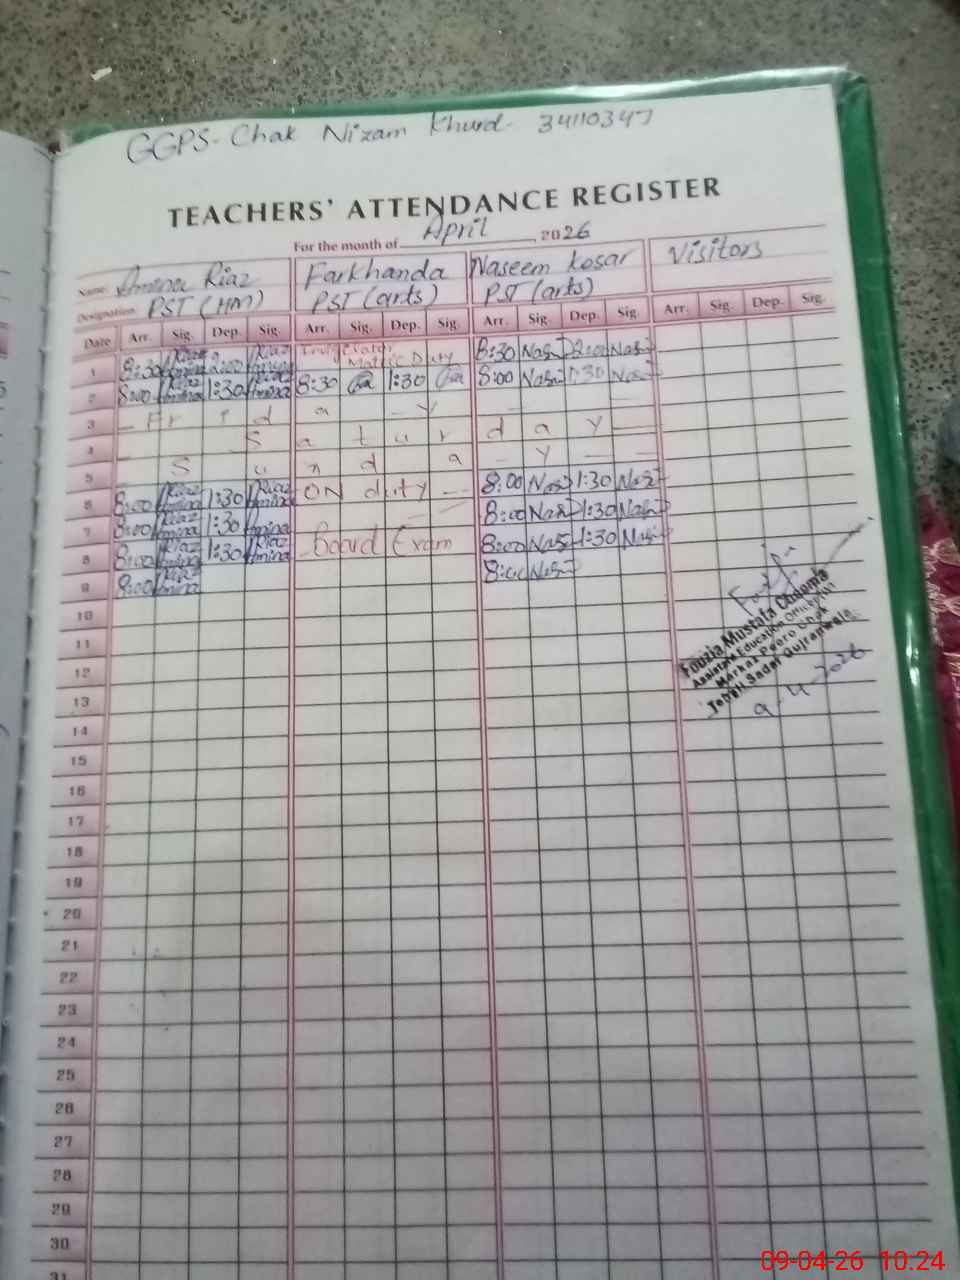 GGPS- Chak Nizam Khurd- 34110347
TEACHERS' ATTENDANCE REGISTER
For the month of April, 2026
Name: Amina Riaz Farkhanda Naseem Kosar Visitors
Designation: PST (HM) PST (arts) PST (arts)
Date Arr. Sig. Dep. Sig. Arr. Sig. Dep. Sig. Arr. Sig. Dep. Sig. Arr. Sig. Dep. Sig.
1 8:30 Riaz Amina 2:00 Riaz Amina Matric Duty 8:30 2:00
2 8:00 Riaz Amina 1:30 Riaz Amina 8:30 1:30 8:00 1:30
3 F r i d a y
4 S a t u r d a y
5 S u n d a y
6 8:00 Riaz Amina 1:30 Riaz Amina ON duty 8:00 1:30
7 8:00 Riaz Amina 1:30 Amina 8:00 1:30
8 8:00 Riaz Amina 1:30 Riaz Amina Board Exam 8:00 1:30
9 8:00 Riaz Amina 8:00
10
11
12
13
14
15
16
17
18
19
20
21
22
23
24
25
26
27
28
29
30
31
Fouzia Mustafa
Assistant Education Officer
Markaz Peero Chak
Sadar Gujranwala
9-4-2026
09-04-26 10.24